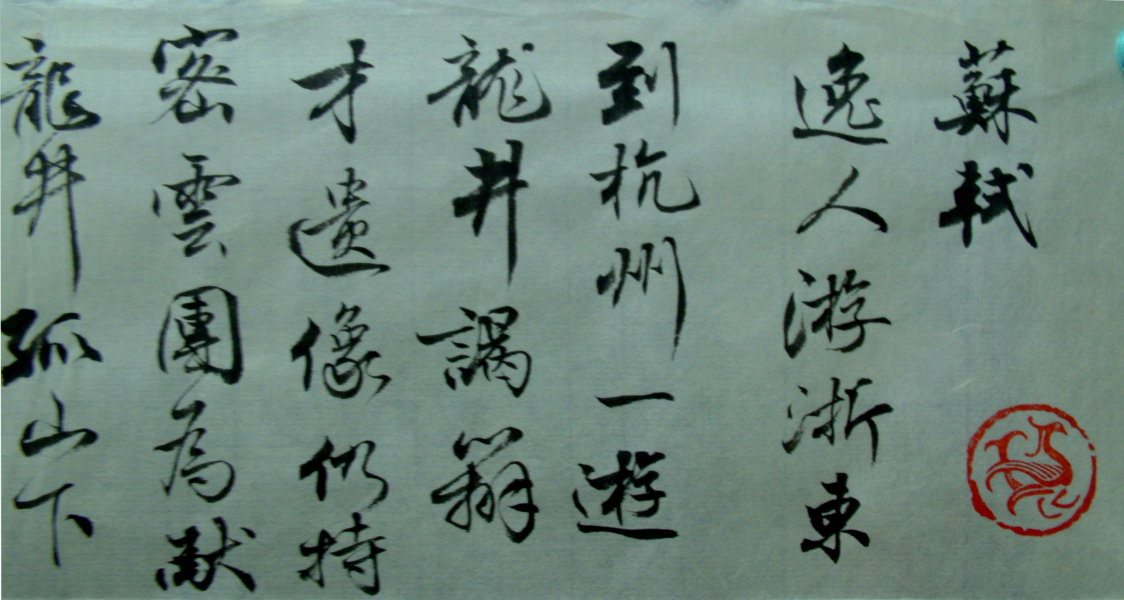 蘇軾
逸人游浙東
到杭州一遊
龍井謁辯
才遺像仍持
密雲團為献
龍井孤山下